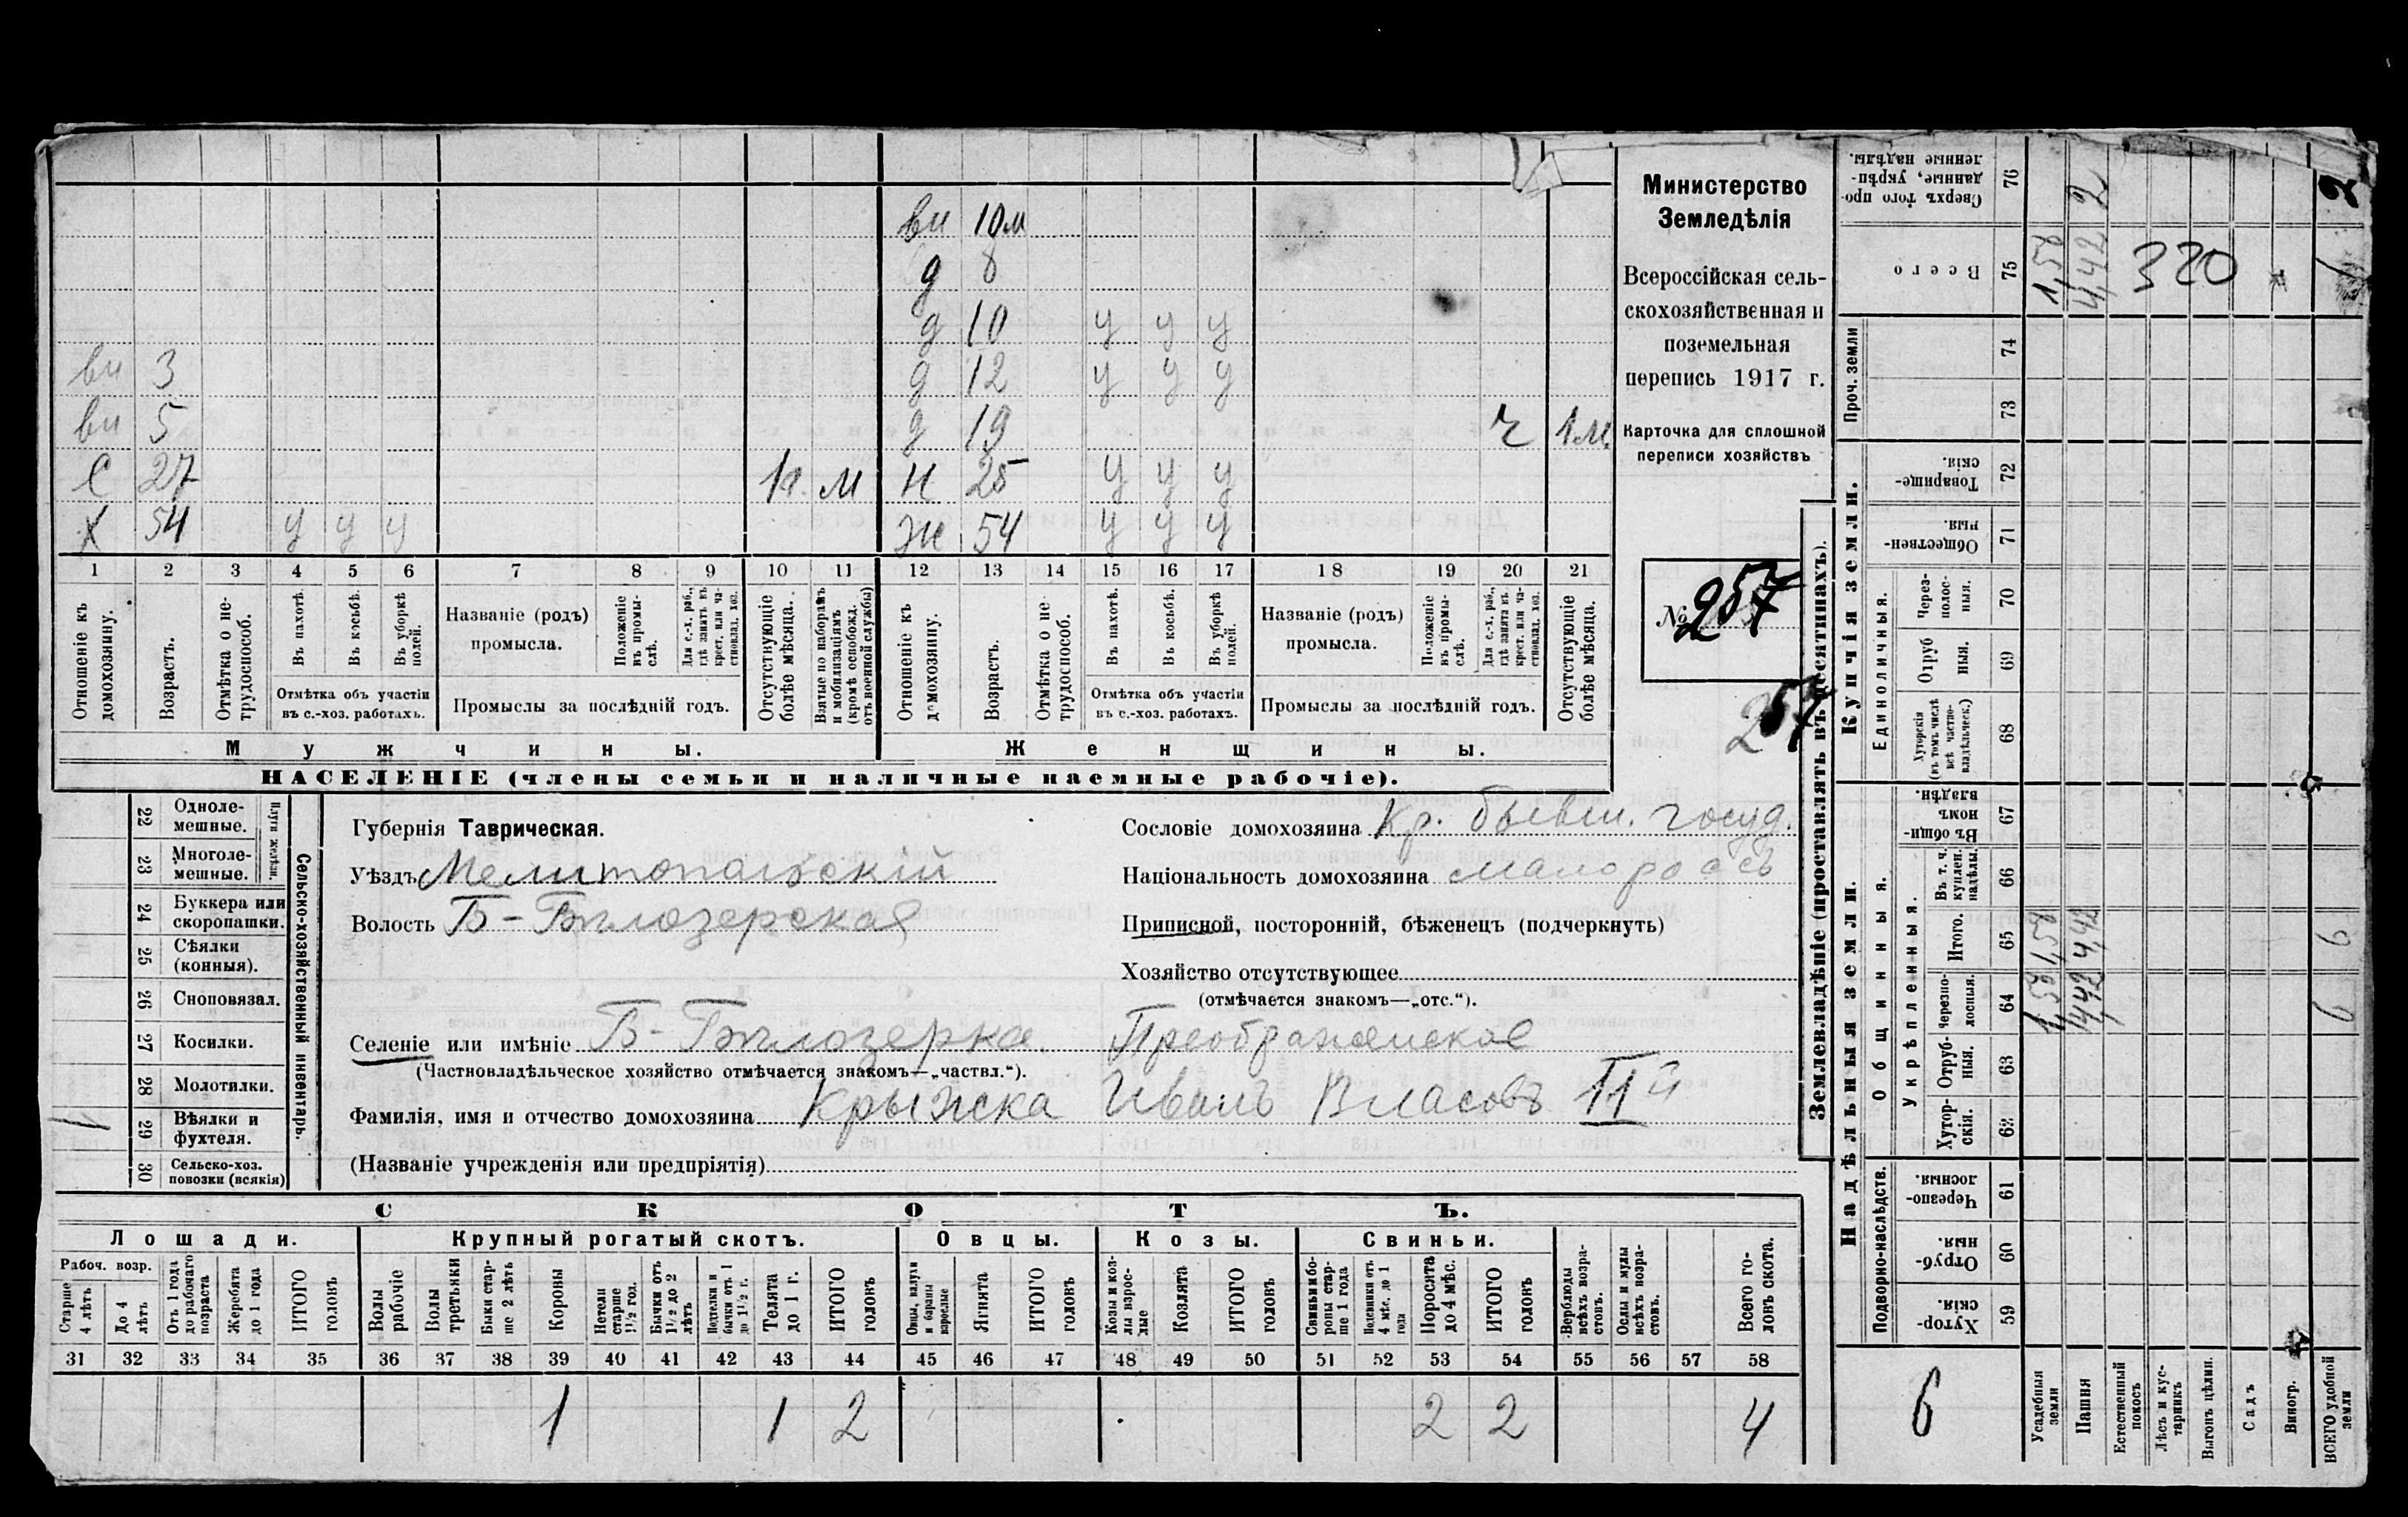 ви 10 м
д 8
д 10 у у у
ви 3 д 12 у у у
ви 5 д 19 ч 1 м
с 27 м н 25 у у у
х 54 у у у ж 54 у у у
1 2 3 4 5 6 7 8 9 10 11 12 13 14 15 16 17 18 19 20 21
Отношеніе къ домохозяину.
Возрастъ.
Отмѣтка о не-трудоспособ.
Въ пахотѣ.
Въ косьбѣ.
Въ уборкѣ полей.
Отмѣтка объ участіи
въ с.-хоз. работахъ.
Названіе (родъ)
промысла.
Положеніе въ промы-слѣ.
Для с.-х. раб., гдѣ занятъ въ крест. или ча-стновлад. хоз.
Промыслы за послѣдній годъ.
Отсутствующіе болѣе мѣсяца.
Взятые по наборамъ и мобилизаціямъ (кромѣ освобожд. отъ военной службы)
Отношеніе къ домохозяину.
Возрастъ.
Отмѣтка о не-трудоспособ.
Въ пахотѣ.
Въ косьбѣ.
Въ уборкѣ полей.
Отмѣтка объ участіи
въ с.-хоз. работахъ.
Названіе (родъ)
промысла.
Положеніе въ промы-слѣ.
Для с.-х. раб., гдѣ занятъ въ крест. или ча-стновлад. хоз.
Промыслы за послѣдній годъ.
Отсутствующіе болѣе мѣсяца.
Мужчины. Женщины.
НАСЕЛЕНІЕ (члены семьи и наличные наемные рабочіе).
Министерство
Земледѣлія
Всероссійская сель-
скохозяйственная и
поземельная
перепись 1917 г.
Карточка для сплошной
переписи хозяйствъ
№ 257
257
Сельско-хозяйственный инвентарь.
Плуги желѣзн.
22 Одноле-
мешные.
23 Многоле-
мешные.
24 Буккера или
скоропашки.
25 Сѣялки
(конныя).
26 Сноповязал.
27 Косилки.
28 Молотилки.
1 29 Вѣялки и
фухтеля.
30 Сельско-хоз.
повозки (всякія)
Губернія Таврическая.
Уѣздъ Мелитопольскій
Волость Б-Бѣлозерская
Сословіе домохозяина Кр. бывш. госуд.
Національность домохозяина малороссъ
Приписной, посторонній, бѣженецъ (подчеркнуть)
Хозяйство отсутствующее
(отмѣчается знакомъ—„отс.“).
Селеніе или имѣніе Б-Бѣлозерка. Преображенское
(Частновладѣльческое хозяйство отмѣчается знакомъ—„частвл.“).
Фамилія, имя и отчество домохозяина Крыжска Иванъ Власовъ IIй
(Названіе учрежденія или предпріятія)
СКОТЪ.
Лошади. Крупный рогатый скотъ. Овцы. Козы. Свиньи.
Рабоч. возр.
Старше 4 лѣтъ
До 4 лѣтъ
Отъ 1 года до рабочаго возраста
Жеребята до 1 года
ИТОГО головъ
Волы рабочіе
Волы третьяки
Быки стар-ше 2 лѣтъ
Коровы
Нетели старше 1½ год.
Бычки отъ 1½ до 2 лѣтъ
Подтелки и бычки отъ 1 до 1½ г.
Телята до 1 г.
ИТОГО головъ
Овцы, валухи и бараны взрослые
Ягнята
ИТОГО головъ
Козы и коз-лы взрос-лые
Козлята
ИТОГО головъ
Свиньи и бо-ровы стар-ше 1 года
Подсвинки отъ 4 мѣс. до 1 года
Поросята до 4 мѣс.
ИТОГО головъ
Верблюды всѣхъ возра-стовъ.
Ослы и мулы всѣхъ возра-стовъ.
Всего го-ловъ скота.
31 32 33 34 35 36 37 38 39 40 41 42 43 44 45 46 47 48 49 50 51 52 53 54 55 56 57 58
1 1 2 2 2 4
Землевладѣніе (проставлять въ десятинахъ).
Надѣльныя земли. Купчія земли. Проч. земли
Подворно-наслѣдств.
Общинныя.
Укрѣпленныя.
Единоличныя.
59 Хутор-скія.
60 Отруб-ныя.
61 Черезпо-лосныя.
62 Хутор-скія.
63 Отруб-ныя.
64 Черезпо-лосныя. 1,58 4,42 6
65 Итого. 1,58 4,42 6
66 Въ т. ч. куплен. надѣлы.
67 Въ общин-номъ владѣн.
68 Хуторскія (въ томъ числѣ всѣ частно-владѣльческ.)
69 Отруб-ныя.
70 Через-полос-ныя.
71 Обществен-ныя.
72 Товарище-скія.
73
74
75 Всего 1,58 4,42 320
76 Сверхъ того про-данные, укрѣп-ленные надѣлы. 2 2
6
Усадебныя земли
Пашня
Естественный покосъ
Лѣсъ и кус-тарникъ
Выгонъ цѣлин.
Садъ
Виногр.
ВСЕГО удобной земли